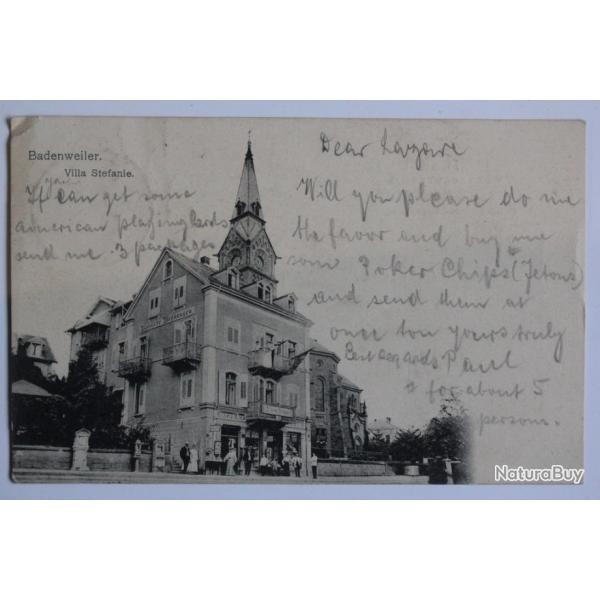 Badenweiler.
Villa Stefanie.
Dear Lazare
Will you please do me
the favor and buy me
som Poker Chips (Jetons)
and send them at
once ton yours truly
Best regards Paul
# for about 5
person.
If you can get some
american playing Cards
send me 3 packages
NaturaBuy